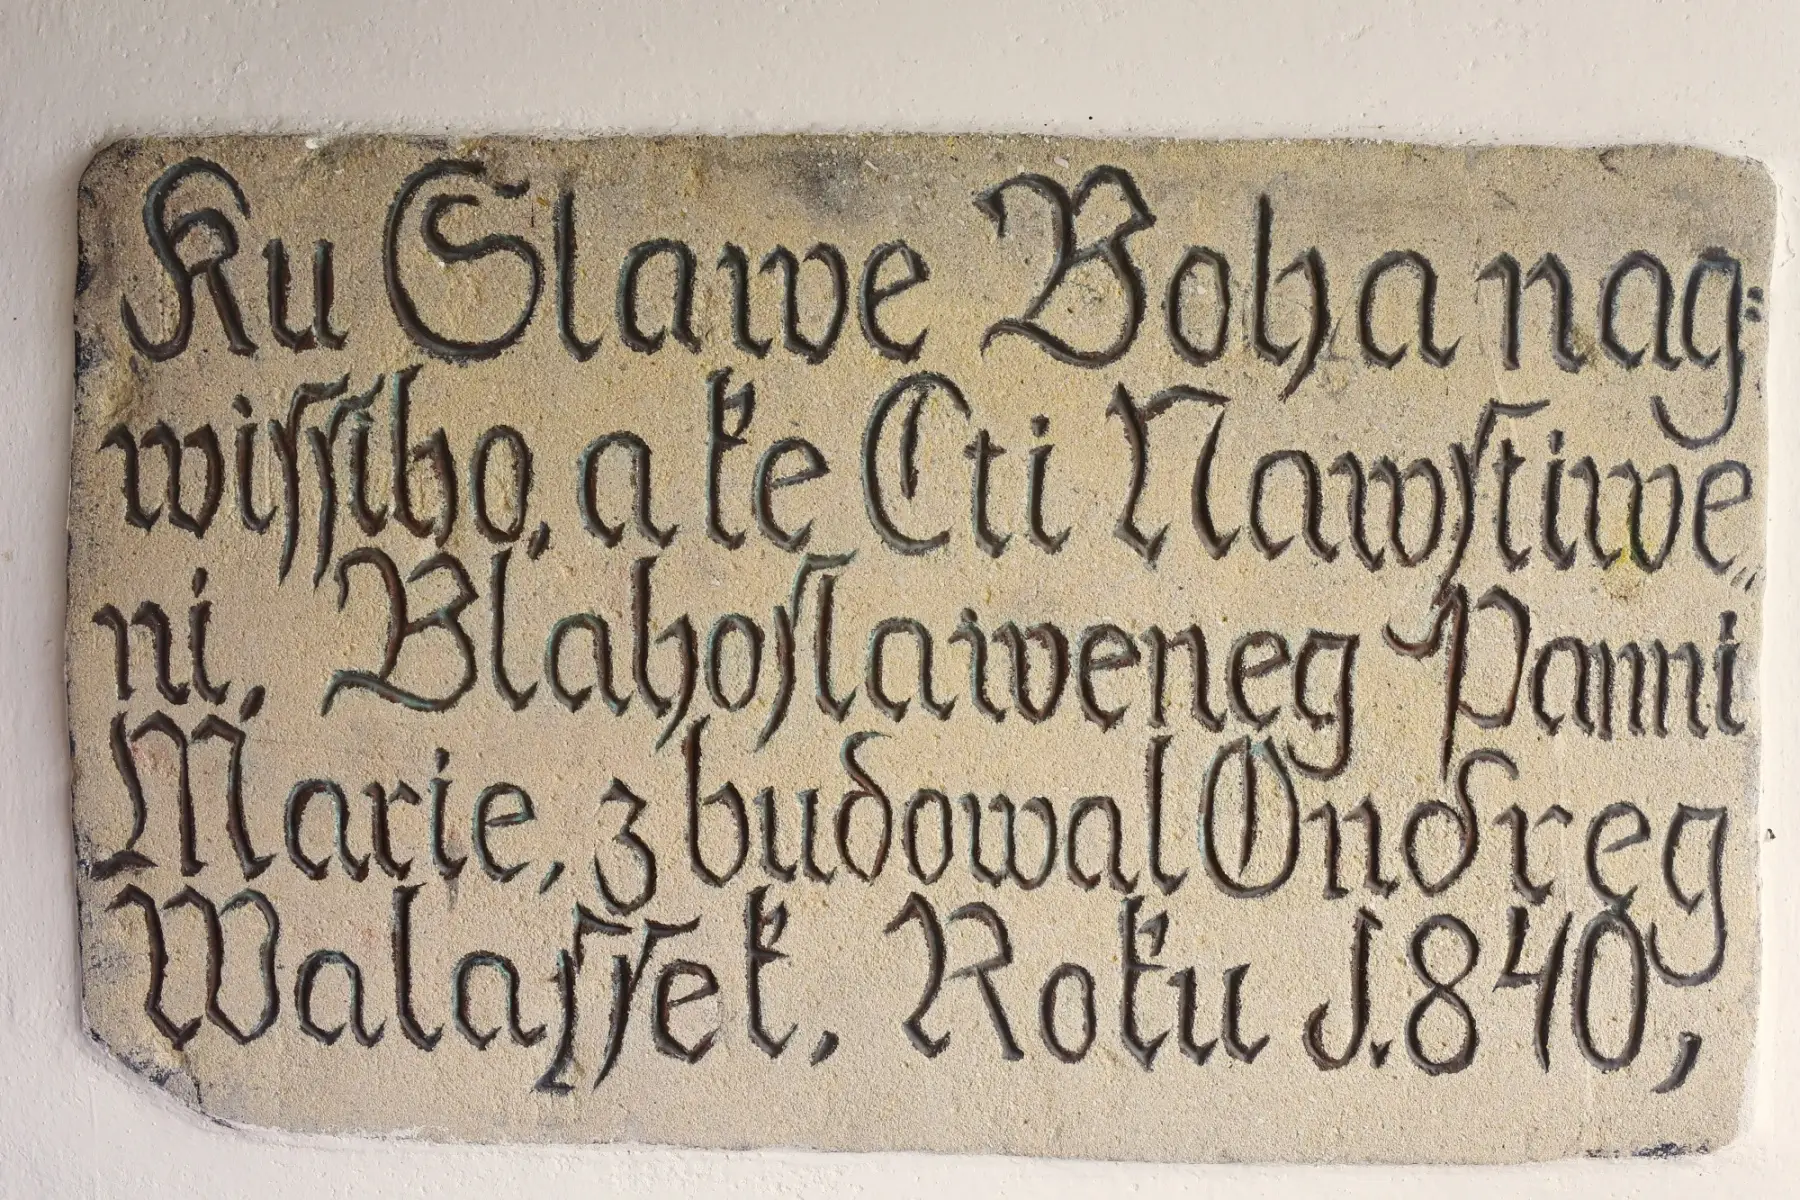 Ku Slawe Boha nag:
wiſſiho, a ke Cti Nawſtiwe„
ni, Blahoſlaweneg Panni
Marie, zbudowal Ondreg
Walaſſek, Roku J.840,